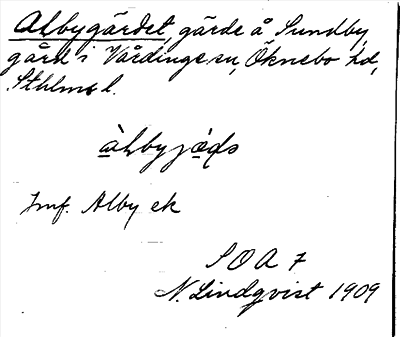 Albygärdet, gärde å Sundby
gård i Vårdinge sn, Öknebo hd,
Sthlms l.
Jmf. Alby ek
S O A 7
N. Lindqvist 1909